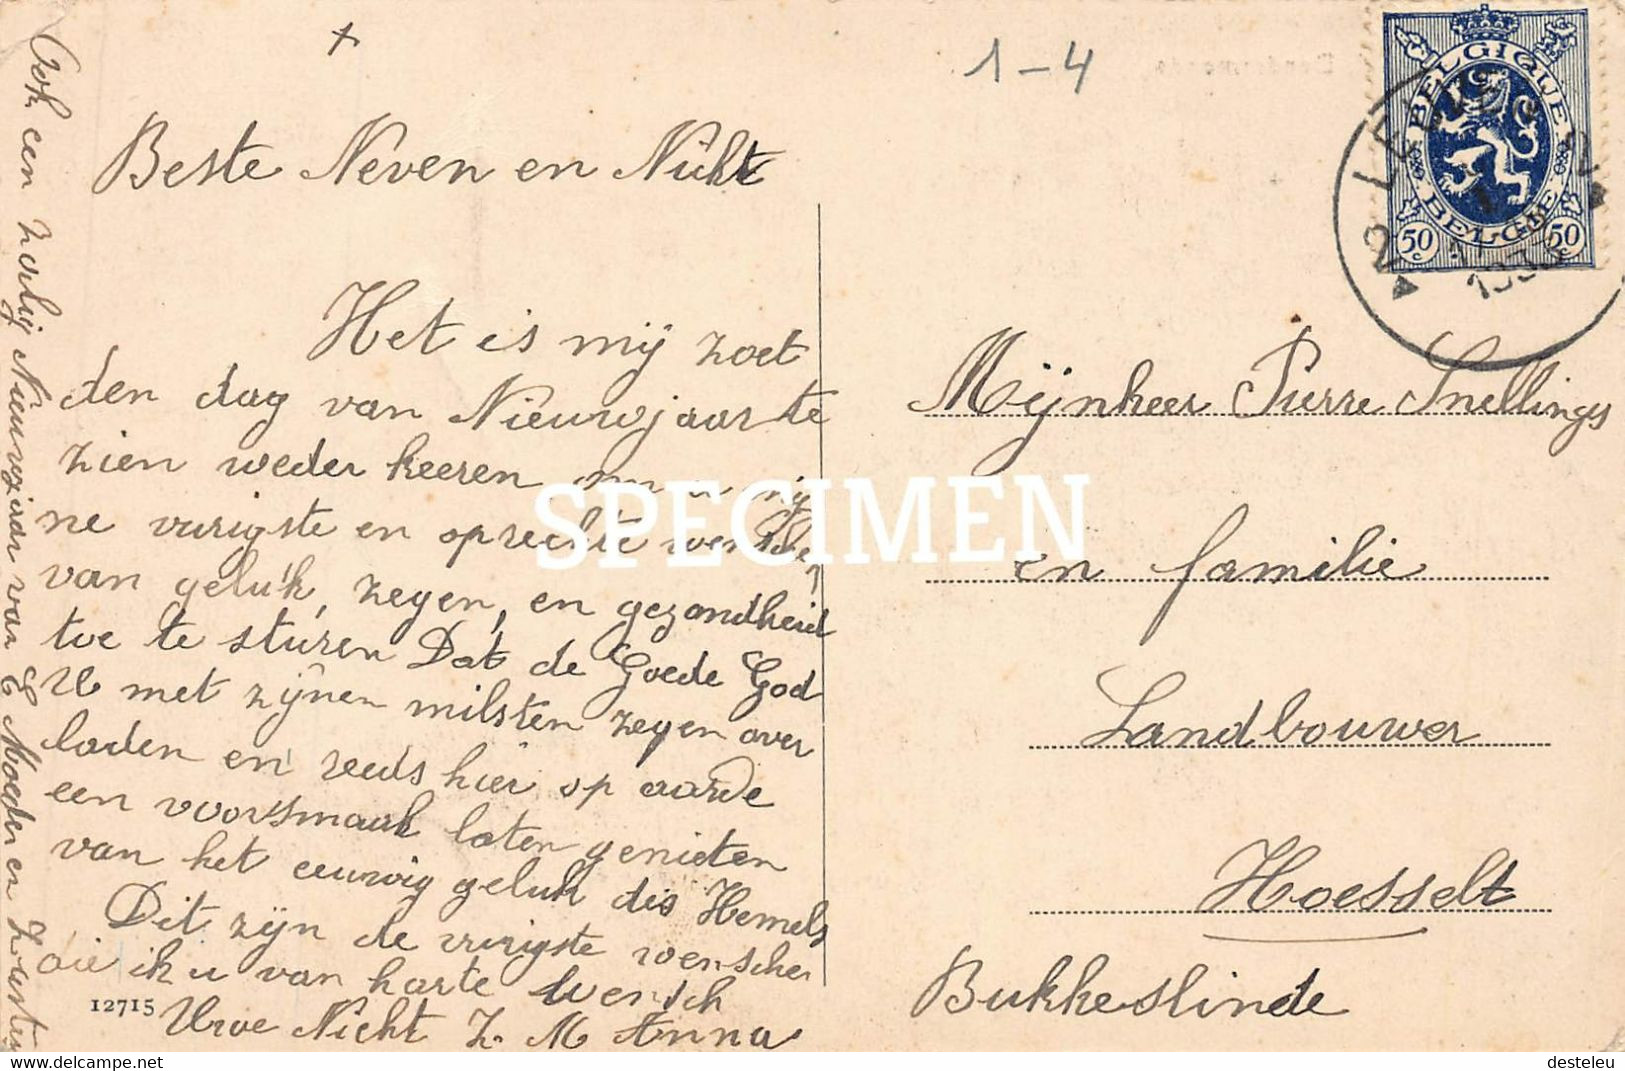 1-4
Beste Neven en Nicht
Het is mij zoet
den dag van Nieuwjaar te
zien weder keeren om u mij
ne vurigste en oprechte wensche
van geluk, zegen, en gezondheid
toe te sturen Dat de Goede God
U met zijnen milsten zegen over
laden en reeds hier op aarde
een voorsmaak laten genieten
van het eeuwig geluk des Hemels
Dit zijn de vurigste wenschen
die ik u van harte wensch
Uwe Nicht Z. M Anna
12715
Ook een zalig Nieuwejaar van E Moeder en Zuster
BELGIQUE
BELGIË
50 c
50 c
1
1933
Mijnheer Pierre Snellings
en familie
Landbouwer
Hoesselt
Bukkeslinde
SPECIMEN
https://www.delcampe.net
desteleu